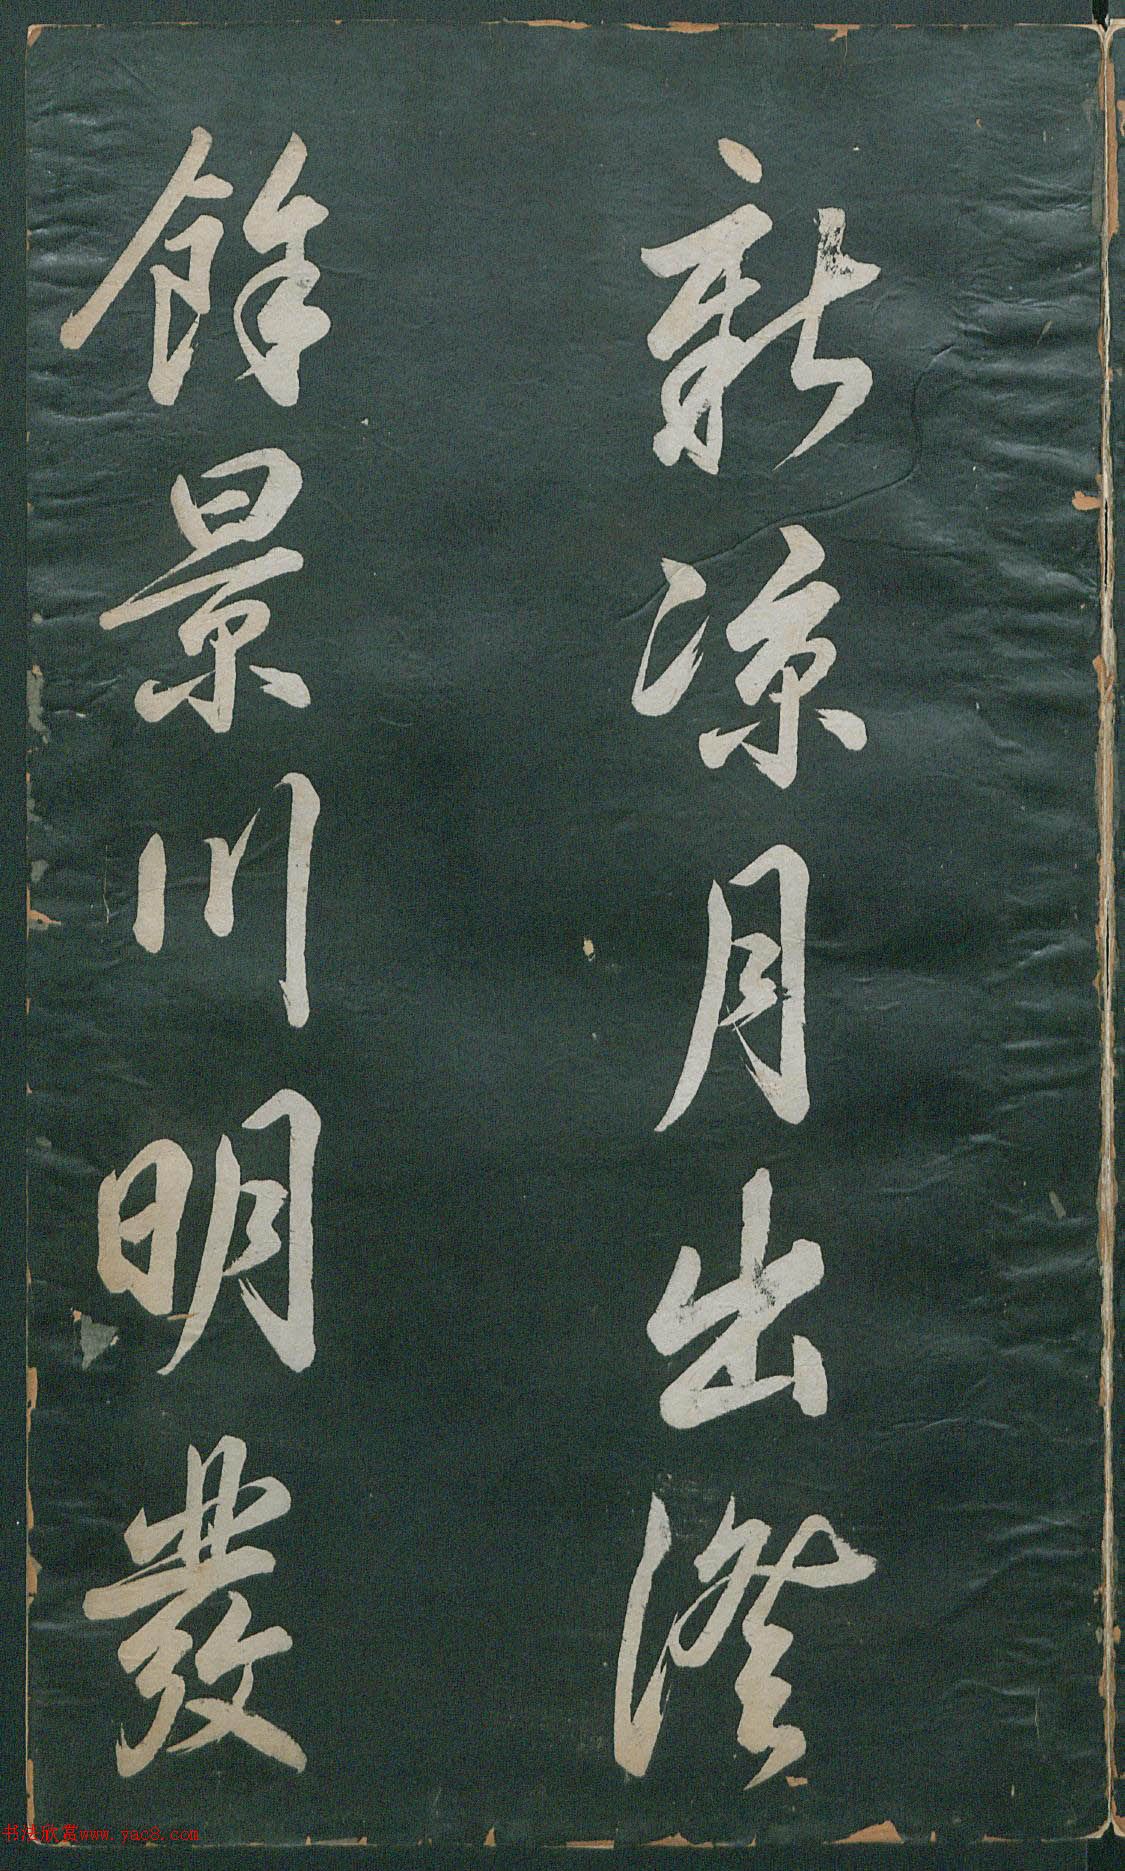 新涼月出澄
餘景川明發
书法欣赏www.yac8.com